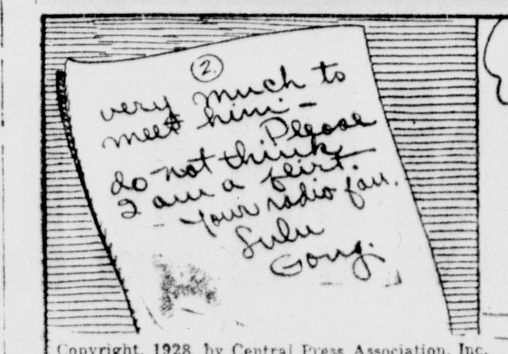 ②
very much to
meet him —
Please
do not think
I am a flirt.
— Your radio fan.
Lulu
Gong.
Copyright, 1928, by Central Press Association, Inc.